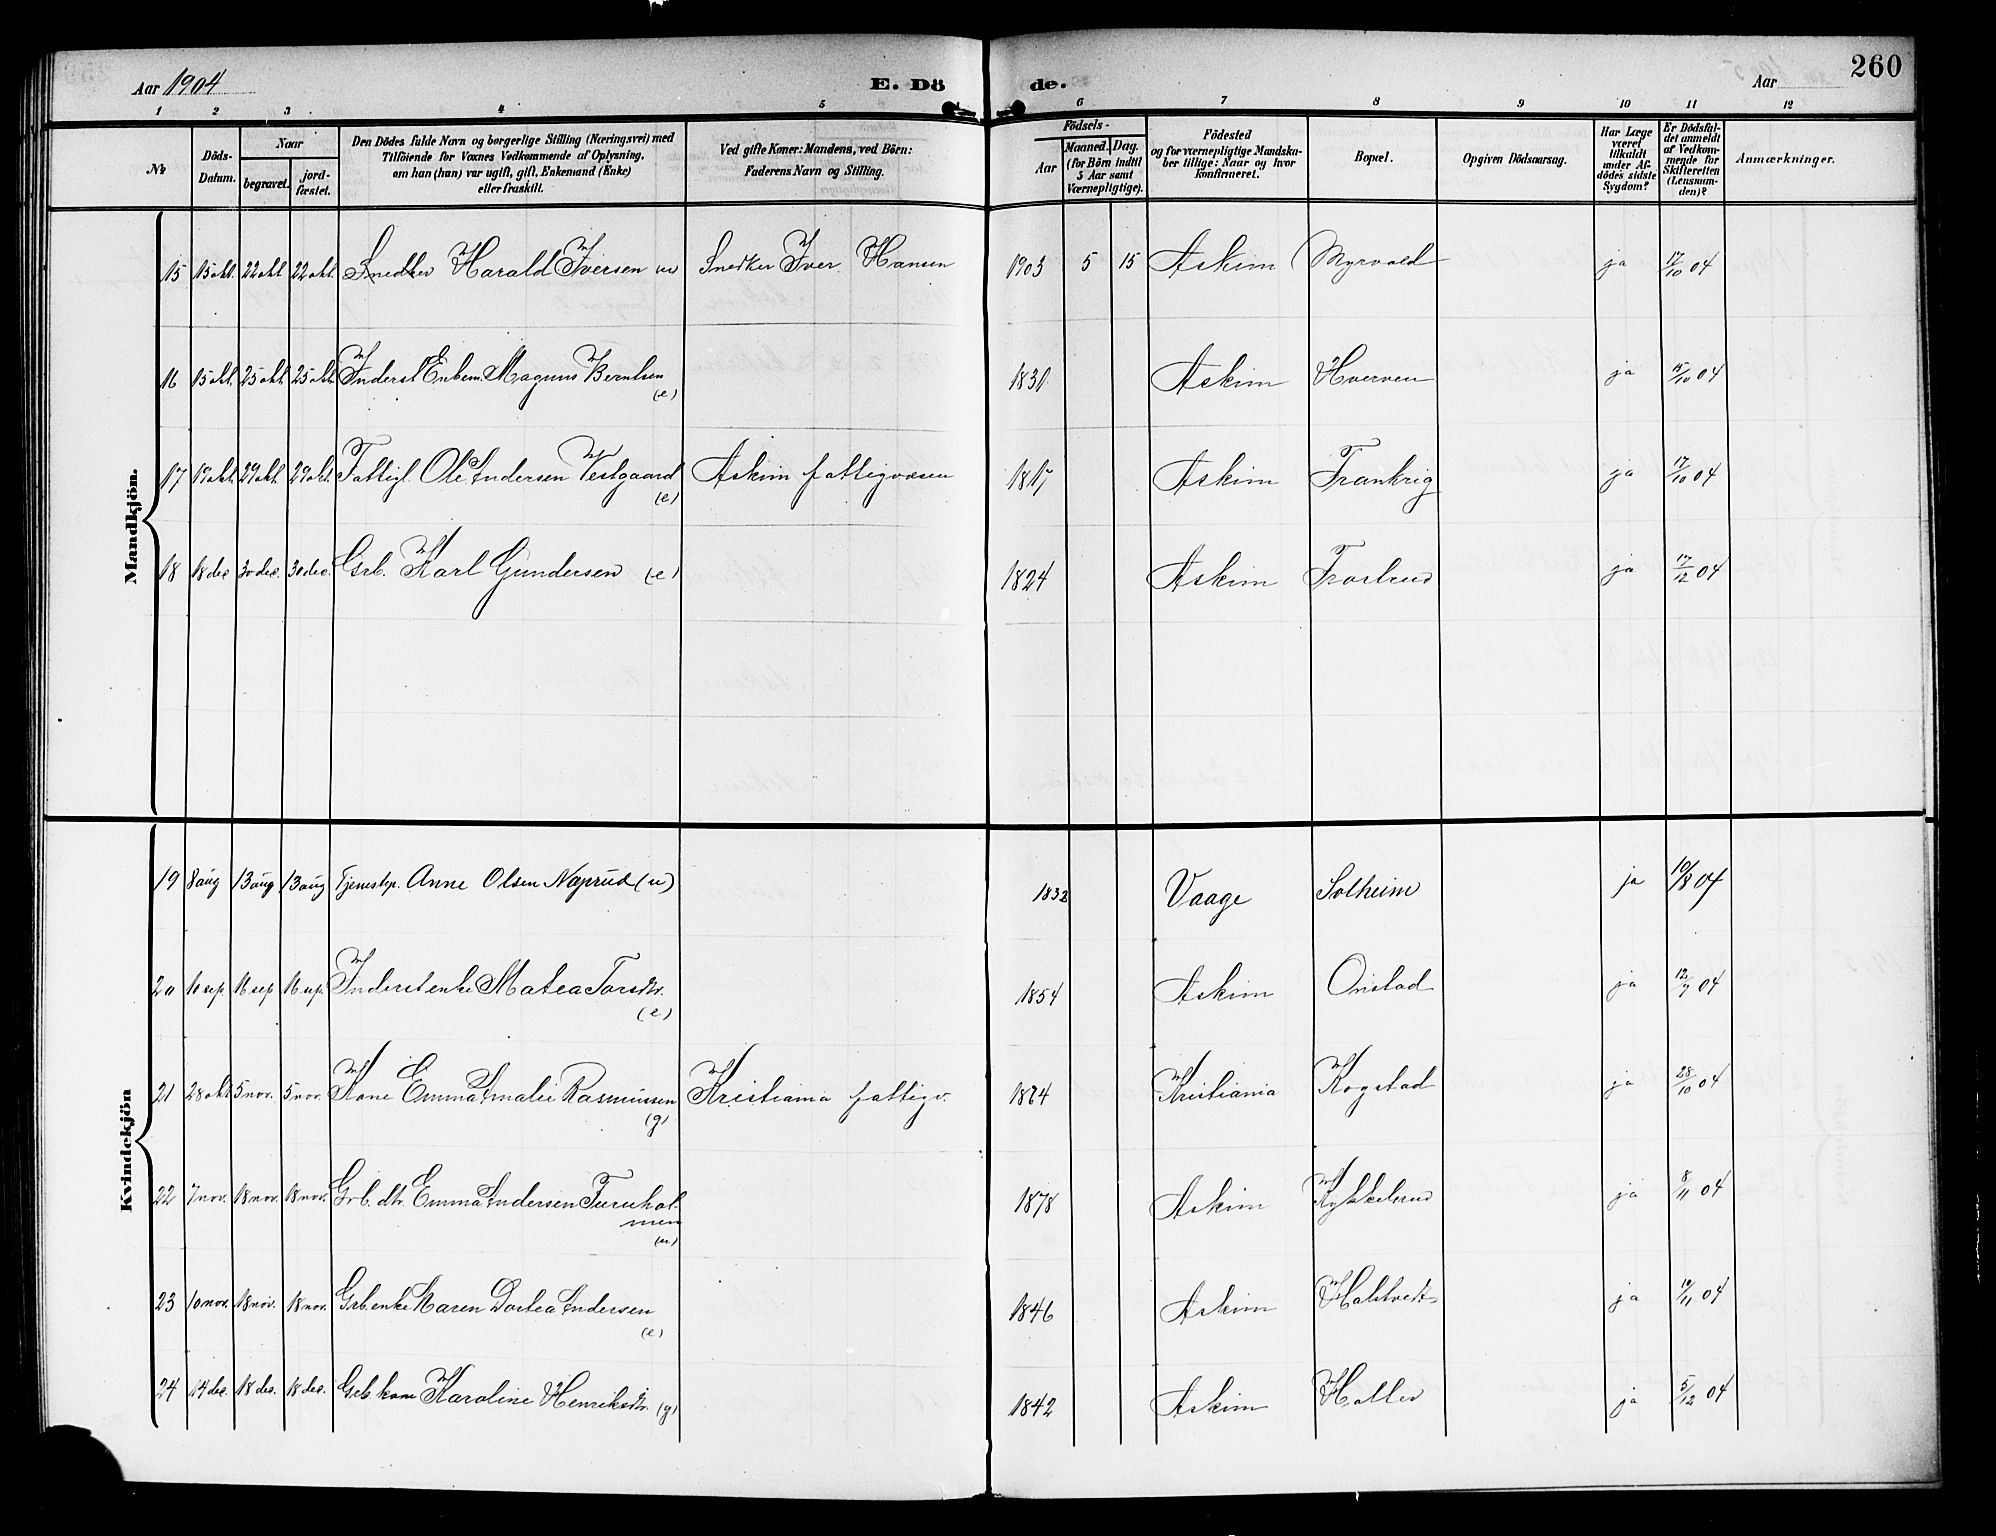 Aar 1904 E. Dö de. Aar 260
1 2 3 4 5 6 7 8 9 10 11 12
No
Döds-Datum.
Naar
begravet. jord-fæstet.
Den Dödes fulde Navn og borgerlige Stilling (Næringsvei) med
Tilföiende for Voxnes Vedkommende af Oplysning,
om han (hun) var ugift, gift, Enkemand (Enke)
eller fraskilt.
Ved gifte Koner: Mandens, ved Börn:
Faderens Navn og Stilling.
Födsels-
Aar Maaned. Dag.
(for Börn indtil
5 Aar samt
Værnepligtige).
Födested
og for værnepligtige Mandska-
ber tillige: Naar og hvor
Konfirmeret.
Bopæl.
Opgiven Dödsaarsag.
Har Læge
været
tilkaldt
under Af-
dödes sidste
Sygdom?
Er Dödsfal-
det anmeldt
af Vedkom-
mende for
Skifteretten
(Lensman-
den)?
Anmærkninger.
Mandkjön.
15 15 okt. 22 okt 22 okt. Snedker Harald Iversen Snedker Iver Hansen 1903 5 15 Askim Myrvold ja 17/10 04
16 15 okt. 25 okt. 25 okt. Inderst Enkem. Magnus Berntsen (e) 1831. Askim Hverven ja 15/10 04
17 17 okt. 29 okt. 29 okt. Fattigl. Ole Andersen Vestgaard (e) Askim fattigvæsen 1817 Askim Frankrig ja 17/10 04
18 18 dec 30 dec. 30 dec. Grb. Karl Gundersen (e) 1824 Askim ja 17/12 04
Kvindekjön
19 8 aug 13 aug 13 aug Tjenestep. Anne Olsen Næprud (u) Vaage Solheim ja 10/8 04
20 10 sep. 16 sep 16 sep. Inderst enke Matea Torsdtr. (e) 1854 Askim Onstad ja 12/9 04
21 28 okt 5 nov. 5 nov. Kone Emma Amalie Rasmussen (g) Kristiania fattigv. 1874 Kristiania Kogstad ja 28/10 04
22 7 nov. 18 nov. 18 nov. Grb. dtr. Emma Andersen Furuhol-
men
(u) 1878 Askim Kykkelsrud ja 8/11 04
23 10 nov. 18 nov. 18 nov. Grb. enke Karen Dortea Andersen (e) 1846 Askim Holstvedt ja 10/11 04
24 14 dec. 18 dec. 18 dec. Grb kone Karoline Henriksdtr. (g) 1842 Askim ja 5/12 04